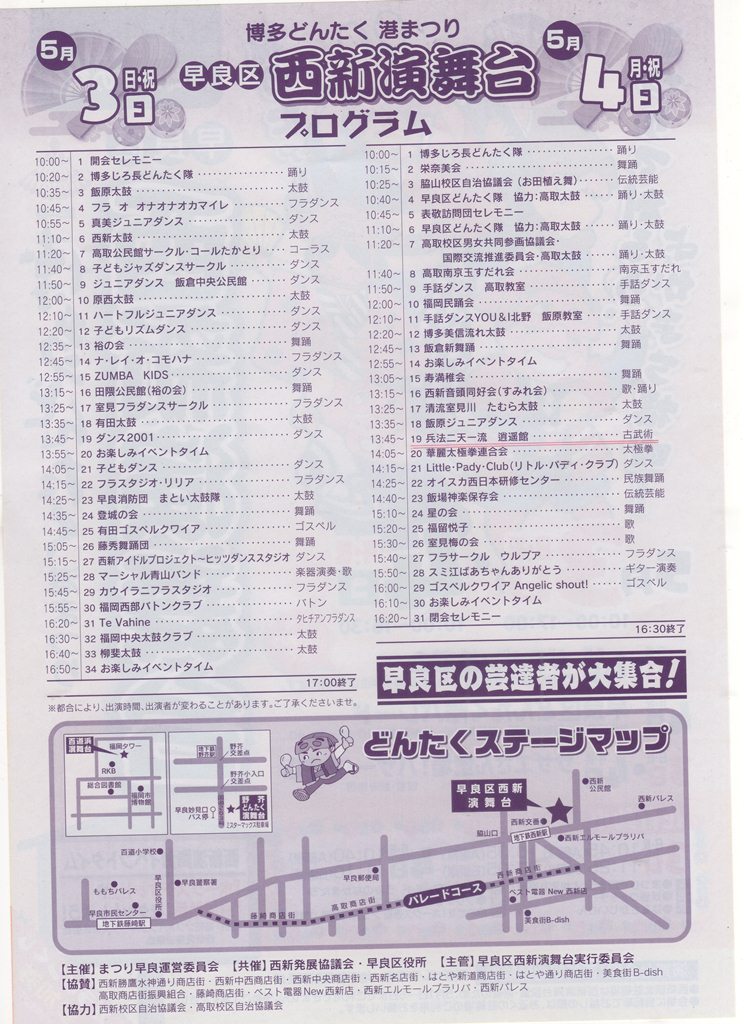 博多どんたく 港まつり
5月3日 日・祝
早良区 西新演舞台
5月4日 月・祝
プログラム
10:00～ 1 開会セレモニー
10:20～ 2 博多じろ長どんたく隊 踊り
10:35～ 3 飯原太鼓 太鼓
10:45～ 4 フラ オ オナオナオカマイレ フラダンス
10:55～ 5 真美ジュニアダンス ダンス
11:10～ 6 西新太鼓 太鼓
11:20～ 7 高取公民館サークル・コールたかとり コーラス
11:40～ 8 子どもジャズダンスサークル ダンス
11:50～ 9 ジュニアダンス 飯倉中央公民館 ダンス
12:00～ 10 原西太鼓 太鼓
12:10～ 11 ハートフルジュニアダンス ダンス
12:20～ 12 子どもリズムダンス ダンス
12:35～ 13 裕の会 舞踊
12:45～ 14 ナ・レイ・オ・コモハナ フラダンス
12:55～ 15 ZUMBA KIDS ダンス
13:15～ 16 田隈公民館(裕の会) 舞踊
13:25～ 17 室見フラダンスサークル フラダンス
13:35～ 18 有田太鼓 太鼓
13:45～ 19 ダンス2001 ダンス
13:55～ 20 お楽しみイベントタイム
14:05～ 21 子どもダンス ダンス
14:15～ 22 フラスタジオ・リリア フラダンス
14:25～ 23 早良消防団 まとい太鼓隊 太鼓
14:35～ 24 登城の会 舞踊
14:45～ 25 有田ゴスペルクワイア ゴスペル
15:05～ 26 藤秀舞踊団 舞踊
15:15～ 27 西新アイドルプロジェクト～ヒッツダンススタジオ ダンス
15:25～ 28 マーシャル青山バンド 楽器演奏・歌
15:45～ 29 カウイラニフラスタジオ フラダンス
15:55～ 30 福岡西部バトンクラブ バトン
16:20～ 31 Te Vahine タヒチアンフラダンス
16:30～ 32 福岡中央太鼓クラブ 太鼓
16:40～ 33 柳斐太鼓 太鼓
16:50～ 34 お楽しみイベントタイム
17:00終了
※都合により、出演時間、出演者が変わることがあります。ご了承くださいませ。
10:00～ 1 博多じろ長どんたく隊 踊り
10:15～ 2 栄奈美会 舞踊
10:25～ 3 脇山校区自治協議会(お田植え舞) 伝統芸能
10:40～ 4 早良区どんたく隊 協力:高取太鼓 踊り・太鼓
10:45～ 5 表敬訪問団セレモニー
11:10～ 6 早良区どんたく隊 協力:高取太鼓 踊り・太鼓
11:20～ 7 高取校区男女共同参画協議会・
国際交流推進委員会・高取太鼓 踊り・太鼓
11:40～ 8 高取南京玉すだれ会 南京玉すだれ
11:50～ 9 手話ダンス 高取教室 手話ダンス
12:00～ 10 福岡民踊会 舞踊
12:10～ 11 手話ダンスYOU&I北野 飯原教室 手話ダンス
12:20～ 12 博多美信流れ太鼓 太鼓
12:45～ 13 飯倉新舞踊 舞踊
12:55～ 14 お楽しみイベントタイム
13:05～ 15 寿満椎会 舞踊
13:15～ 16 西新音頭同好会(すみれ会) 歌・踊り
13:25～ 17 清流室見川 たむら太鼓 太鼓
13:35～ 18 飯原ジュニアダンス ダンス
13:45～ 19 兵法二天一流 逍遥館 古武術
14:05～ 20 華麗太極拳連合会 太極拳
14:15～ 21 Little・Pady・Club(リトル・パディ・クラブ) ダンス
14:25～ 22 オイスカ西日本研修センター 民族舞踊
14:40～ 23 飯場神楽保存会 伝統芸能
15:10～ 24 星の会 舞踊
15:20～ 25 福留悦子 歌
15:30～ 26 室見梅の会 歌
15:40～ 27 フラサークル ウルプア フラダンス
15:50～ 28 スミ江ばあちゃんありがとう ギター演奏
16:00～ 29 ゴスペルクワイア Angelic shout! ゴスペル
16:10～ 30 お楽しみイベントタイム
16:20～ 31 閉会セレモニー
16:30終了
早良区の芸達者が大集合!
どんたくステージマップ
百道浜演舞台
福岡タワー
RKB
総合図書館
福岡市博物館
地下鉄野芥駅
野芥交差点
野芥小入口交差点
早良妙見口バス停
野芥どんたく演舞台
ミスターマックス駐車場
早良区西新演舞台
西新公民館
西新パレス
西新交番
地下鉄西新駅
西新エルモールプラリバ
脇山口
百道小学校
早良警察署
早良区役所
ももちパレス
早良市民センター
地下鉄藤崎駅
早良郵便局
藤崎商店街
高取商店街
パレードコース
西新商店街
ベスト電器 New 西新店
美食街B-dish
【主催】まつり早良運営委員会 【共催】西新発展協議会・早良区役所 【主管】早良区西新演舞台実行委員会
【協賛】西新勝鷹水神通り商店街・西新中西商店街・西新中央商店街・西新名店街・はとや新道商店街・はとや通り商店街・美食街B-dish
高取商店街振興組合・藤崎商店街・ベスト電器New西新店・西新エルモールプラリバ・西新パレス
【協力】西新校区自治協議会・高取校区自治協議会